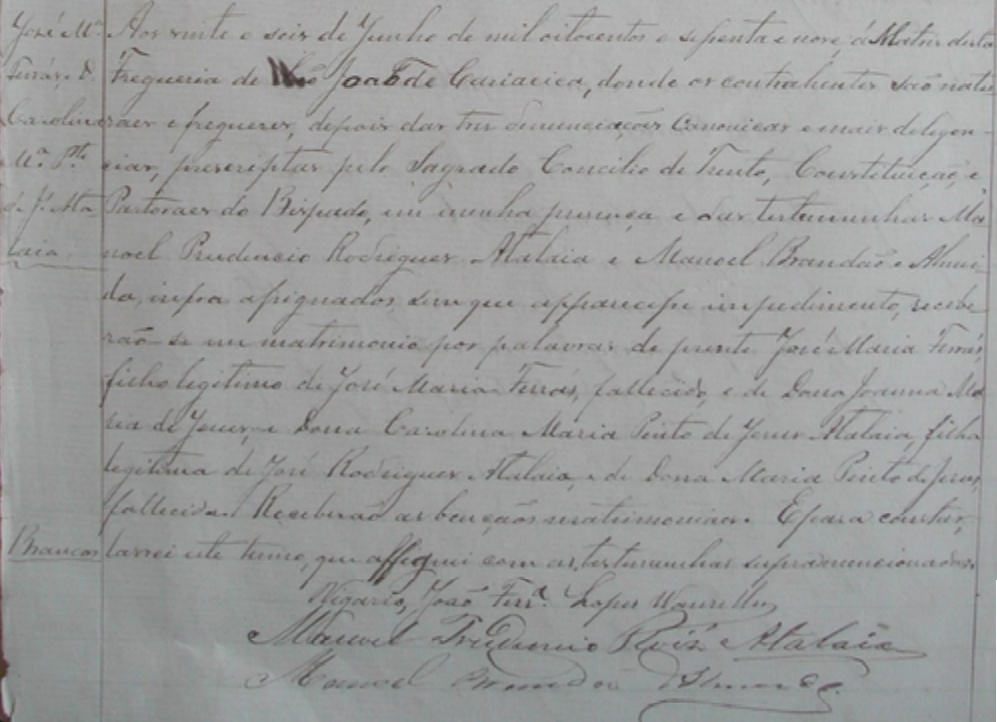 José Mª
Ferrás, D.
Carolina
Mª Pto
de J. Ata
laia.
Brancos
Aos vinte e seis de Junho de mil oitocentos e septenta e nove, á Matriz desta
Freguesia de São João de Cariacica, donde os contrahentes são natu
raes e freguezes, depois das tres denunciações canonicas e mais deligen-
cias, prescriptas pelo Sagrado Concilio de Trento, Constituição e
Pastoraes do Bispado, em minha presença e das testemunhas Ma
noel Prudencio Rodrigues Atalaia e Manoel Brandão e Almei
da, infra assignados, sem que apparecesse impedimento, recebe
rão-se em matrimonio por palavras de presente José Maria Ferrás,
filho legitimo de José Maria Ferrás, fallecido, e de Dona Joanna Ma
ria de Jesus, e Dona Carolina Maria Pinto de Jesus Atalaia, filha
legitima de José Rodrigues Atalaia, e de Dona Maria Pinto de Jesus,
fallecida. Receberão as bençãos matrimoniaes. E para constar,
lavrei este termo, que assignei com as testemunhas supramencionadas.
Vigario, João Ferrª. Lopes
Manoel Prudencio Roiz Atalaia
Manoel Brandão Almeida